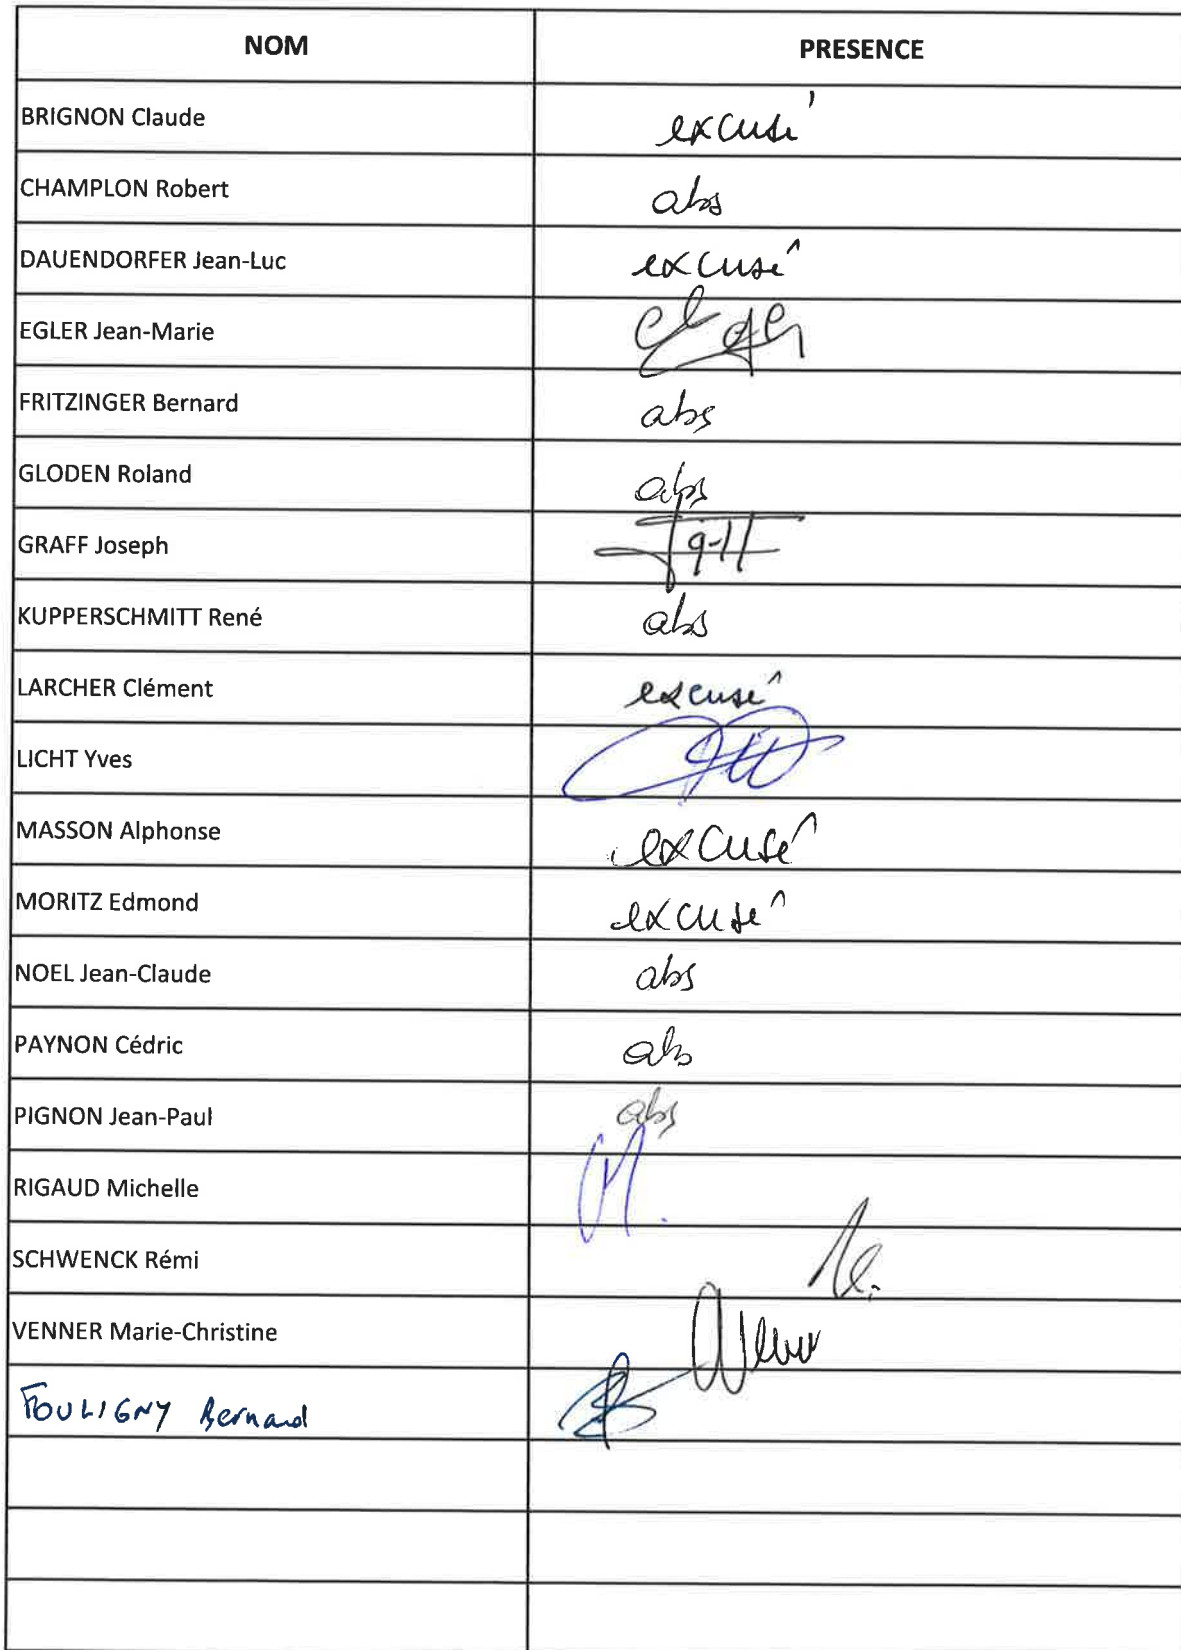 NOM PRESENCE
BRIGNON Claude excusé
CHAMPLON Robert abs
DAUENDORFER Jean-Luc excusé
EGLER Jean-Marie
FRITZINGER Bernard abs
GLODEN Roland abs
GRAFF Joseph
KUPPERSCHMITT René abs
LARCHER Clément excusé
LICHT Yves
MASSON Alphonse excusé
MORITZ Edmond excusé
NOEL Jean-Claude abs
PAYNON Cédric abs
PIGNON Jean-Paul abs
RIGAUD Michelle
SCHWENCK Rémi
VENNER Marie-Christine
FOULIGNY Bernard